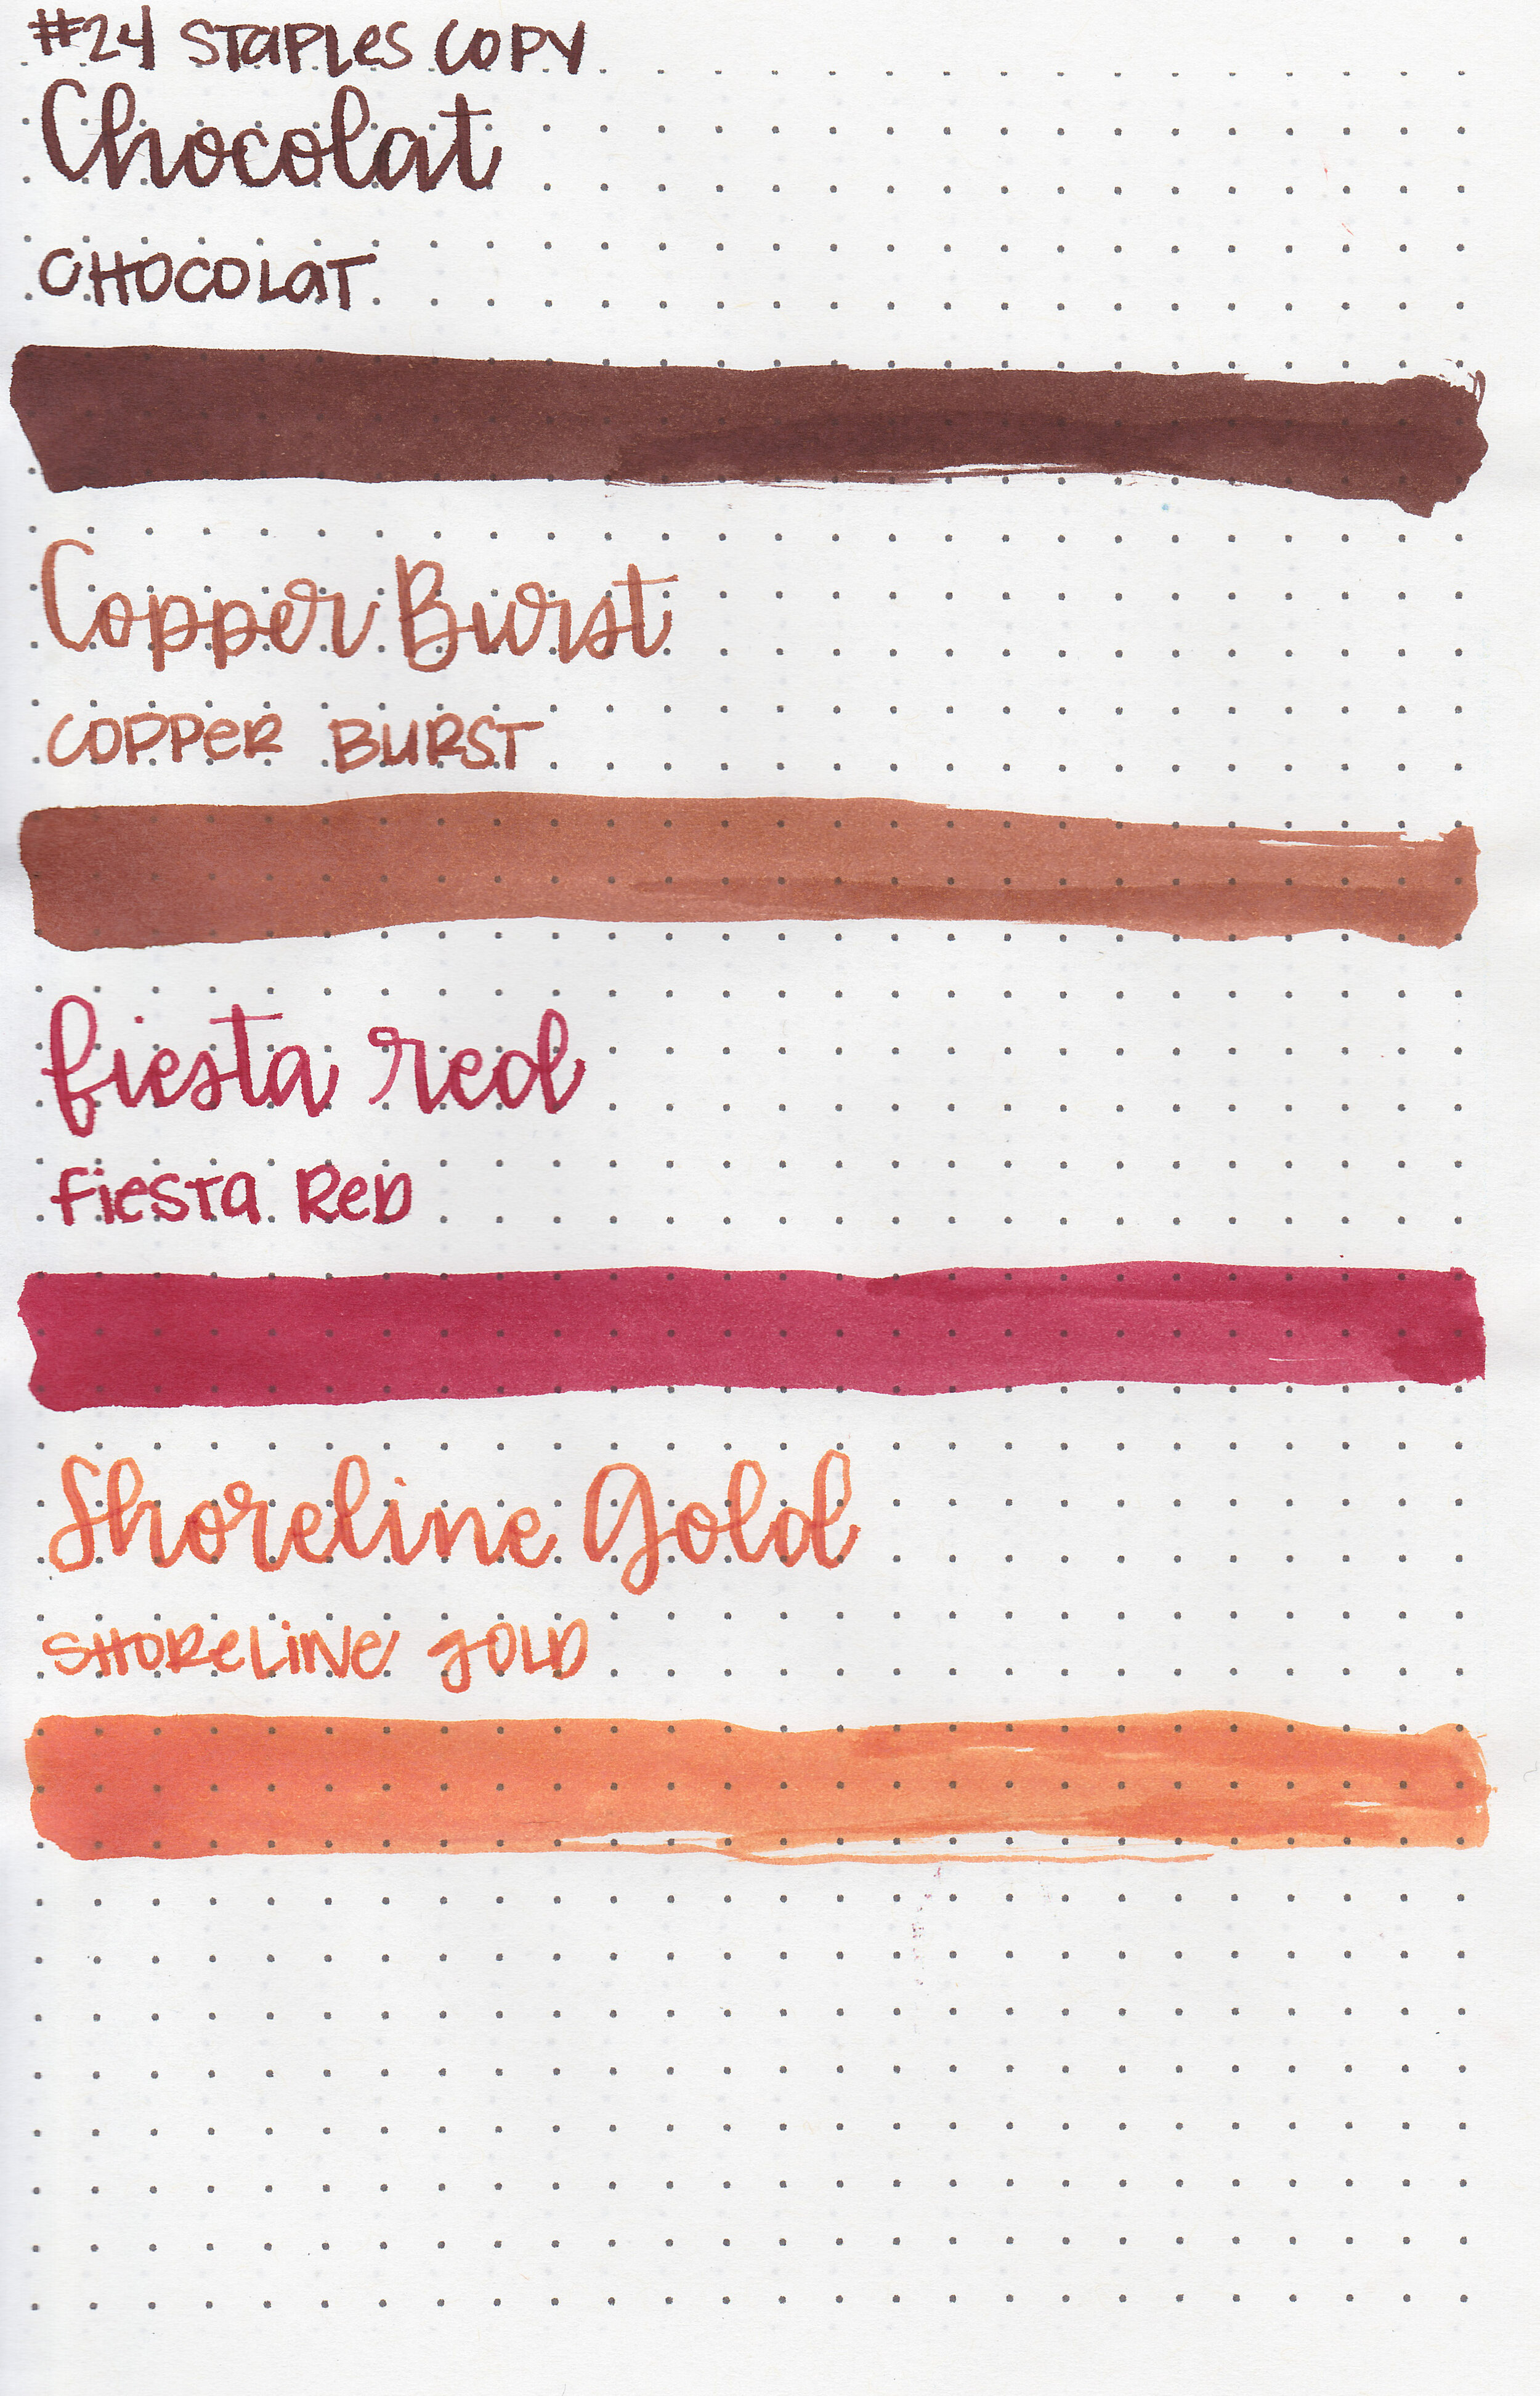 #24 STaPLes COPY
Chocolat
CHOCOLaT
Copper Burst
COPPeR BURST
fiesta red
FiesTa ReD
Shoreline Gold
SHOReLiNe gOLD